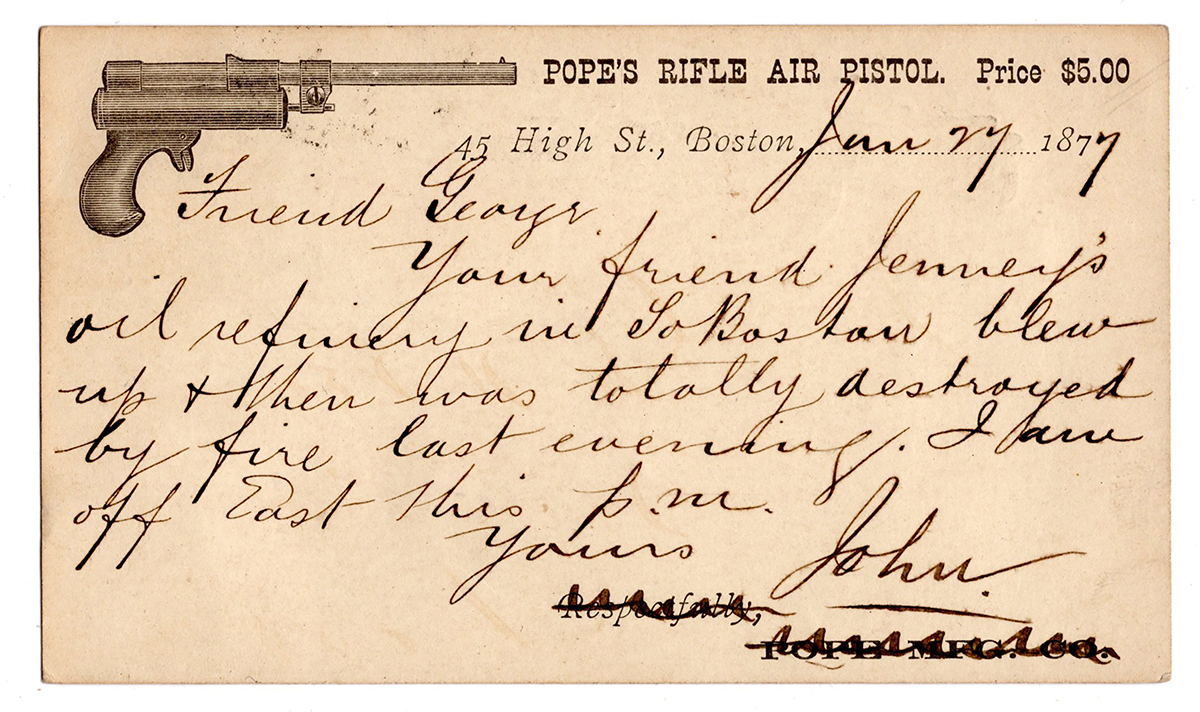 POPE'S RIFLE AIR PISTOL. Price $5.00
45 High St., Boston, Jan 27 1877
Friend George
Your friend Jenney's
oil refinery in So Boston blew
up & then was totally destroyed
by fire last evening. I am
off East this p.m.
Yours John.
Respectfully,
POPE MFG. CO.